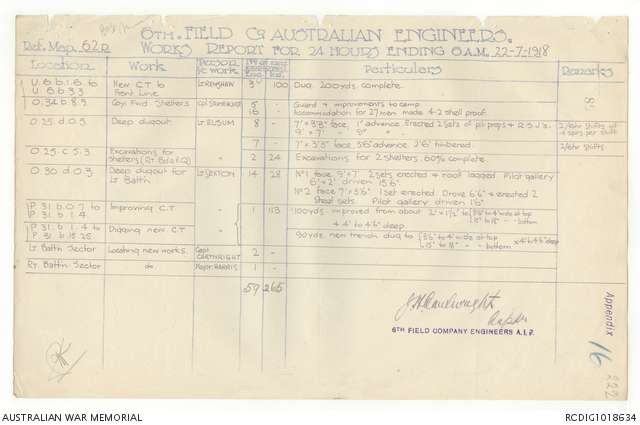 6TH. FIELD Co AUSTRALIAN ENGINEERS.
Ref. Map. 62D WORKS REPORT FOR 24 HOURS ENDING 6 A.M. 22-7-1918
Location Work Person i/c Work Particulars Remarks
U 6 b.1.6 to U 6 b 3.3 New C.T to Front Line Lt RENSHAW 3 100 Dug 200 yds. complete.
O.34 b 8.9 Coy. Fwd Shelters 5 Guard & improvements to camp
16 Accommodation for 27 men made 4.2 shell proof.
O 25 d.0.5 Deep dugout Lt ELSUM 8 - 7' x 3'3" face. 1' advance. Erected 2 sets of pit props & R.S.J's. 2/6hr shifts of
9' x 7' " 5" " 4 sprs per shift
7 - 7' x 3'3" face 5'6 advance 3'6" timbered. 2/6hr shifts
O.25.c.5.3 Excavations for Shelters (Rt Bde R.Q) 2 24 Excavations for 2 shelters. 60% complete.
O 30 d 0.3 Deep dugout for Lt Battn Lt SEXTON 14 28 No 1 face 9' x 7' 2 sets erected & roof lagged Pilot gallery
6' x 2' driven 15'6"
No 2 face 7' x 3'6" 1 set erected. Drove 6'6" & erected 2
sets. Pilot gallery driven 1'6"
P 31. b 0.7 to P 31 b 1.4 Improving C.T 1 113 100 yds. improved from about 2' x 1½' to
bottom
x 4' to 4'6" deep.
P. 31. b. 1. 4 to P 31 b 15 25 Digging new C.T 90 yds. new trench dug to 3'6" to 4' wide at top
15" to 18" " " bottom x 4' to 4'6" deep
Lt Battn Sector Locating new works. Capt CARTWRIGHT 2 -
Rt Battn Sector do Major HARRIS 1 -
59 265
6TH FIELD COMPANY ENGINEERS A.I.F.
Appendix 16
222
OK
AUSTRALIAN WAR MEMORIAL
RCDIG1018634